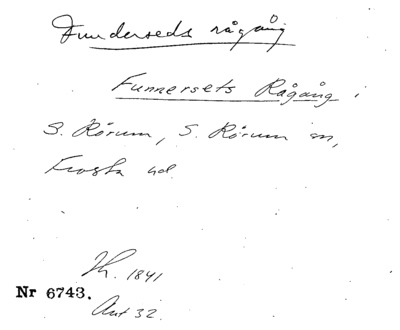 Funderseds rågång
Funnersets Rågång i
S. Rörum, S. Rörum sn,
Frosta hd.
Th. 1841
Nr 6743.
Ant 32